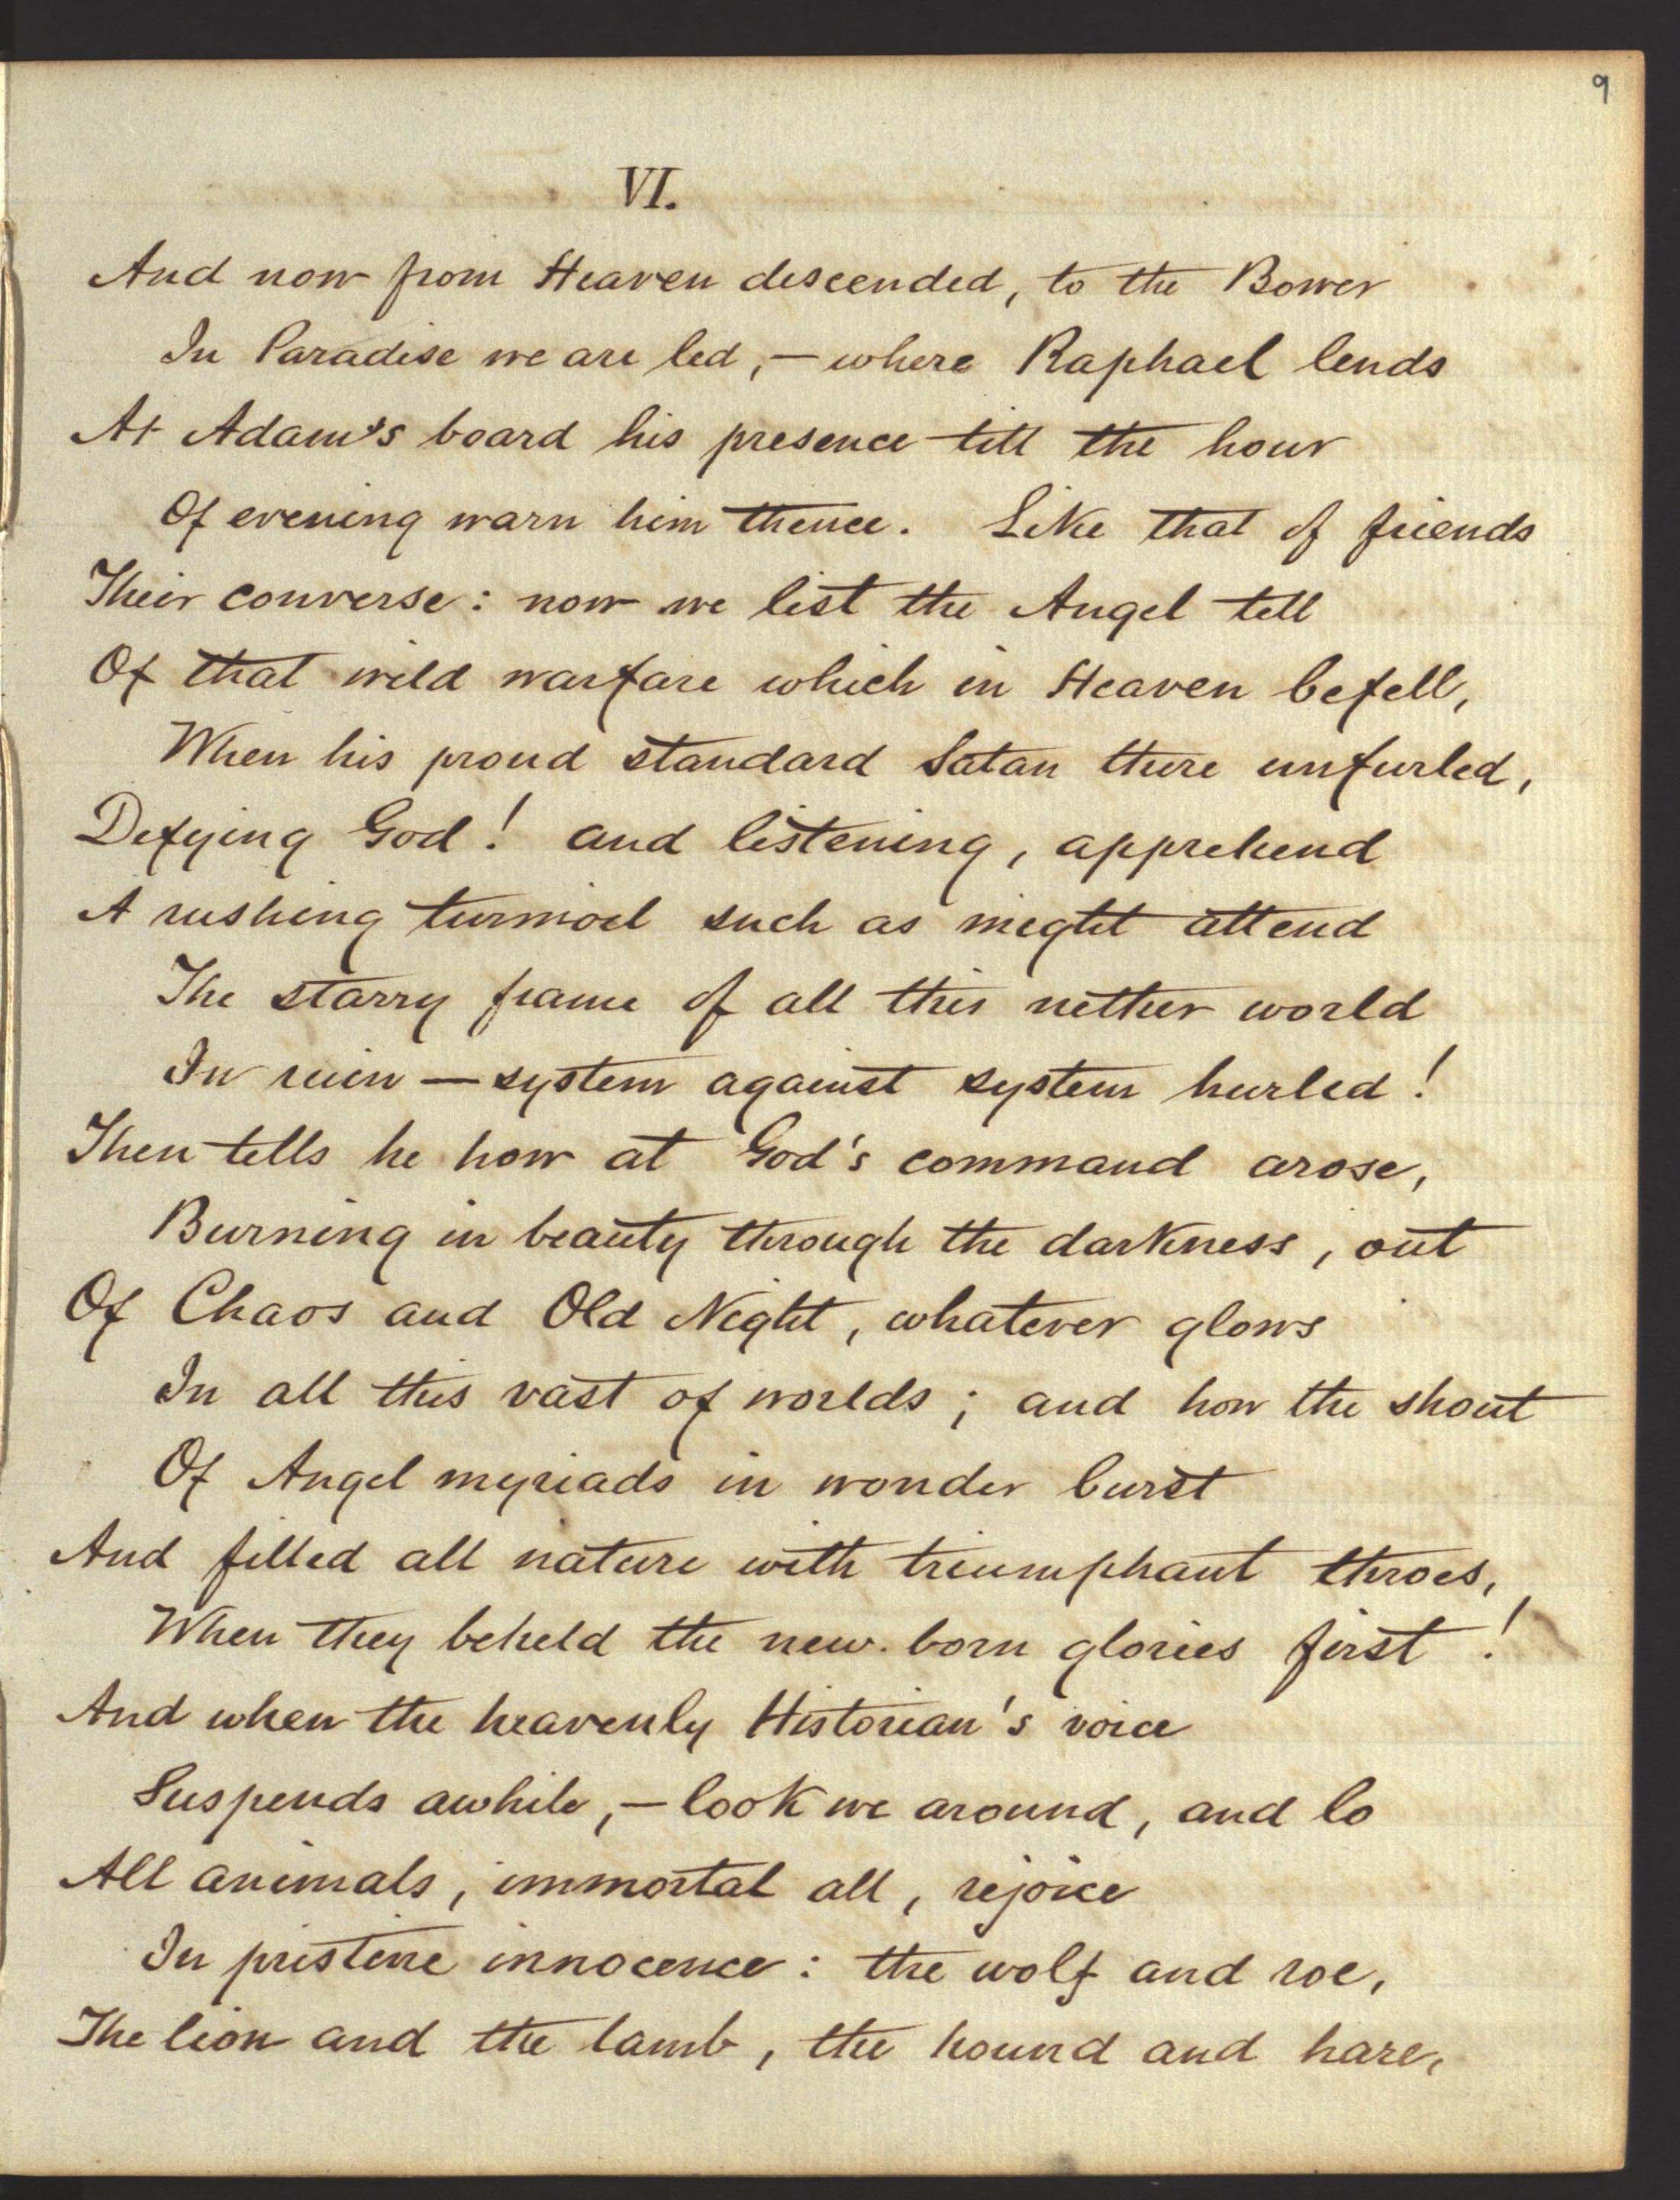 9
VI.
And now from Heaven descended, to the Bower
In Paradise we are led, — where Raphael lends
At Adam's board his presence till the hour
Of evening warn him thence. Like that of friends
Their converse: now we list the Angel tell
Of that wild warfare which in Heaven befell,
When his proud standard Satan there unfurled,
Defying God! and listening, apprehend
A rushing turmoil such as might attend
The starry frame of all this nether world
In ruin — system against system hurled!
Then tells he how at God's command arose,
Burning in beauty through the darkness, out
Of Chaos and Old Night, whatever glows
In all this vast of worlds; and how the shout
Of Angel myriads in wonder burst
And filled all nature with triumphant throes,
When they beheld the new-born glories first!
And when the heavenly Historian's voice
Suspends awhile, — look we around, and lo
All animals, immortal all, rejoice
In pristine innocence: the wolf and roe,
The lion and the lamb, the hound and hare,